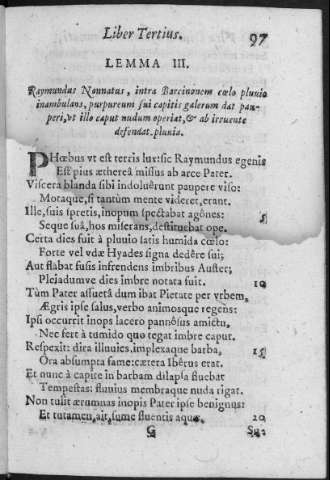 Liber Tertius. 97
LEMMA III.
Raymundus Nonnatus, intra Barcinonem cœlo pluuio
inambulans, purpureum sui capitis galerum dat pau-
peri, vt illo caput nudum operiat, & ab irruente
defendat pluuia.
PHœbus vt est terris lux: sic Raymundus egenis
Est pius æthereâ missus ab arce Pater.
Viscera blanda sibi indoluêrunt paupere viso:
Motaque, si tantùm mente videret, erant.
Ille, suis spretis, inopum spectabat agônes: 5
Seque suâ, hos miserans, destituebat ope.
Certa dies fuit à pluuio satis humida cœlo:
Forte vel vdæ Hyades signa dedêre sui;
Aut stabat fusis infrendens imbribus Auster;
Pleiadumve dies imbre notata fuit. 10
Tùm Pater assuetâ dum ibat Pietate per vrbem,
Ægris ipse salus, verbo animosque regens:
Ipsi occurrit inops lacero pannôsus amictu,
Nec fert à tumido quo tegat imbre caput.
Respexit: dira illuuies, implexaque barba, 15
Ora absumpta fame: cætera Ibêrus erat.
Et nunc à capite in barbam dilapsa fluebat
Tempestas: fluuius membraque nuda rigat.
Non tulit ærumnas inopis Pater ipse benignus:
Et tutamen, ait, sume fluentis aquæ. 20
G